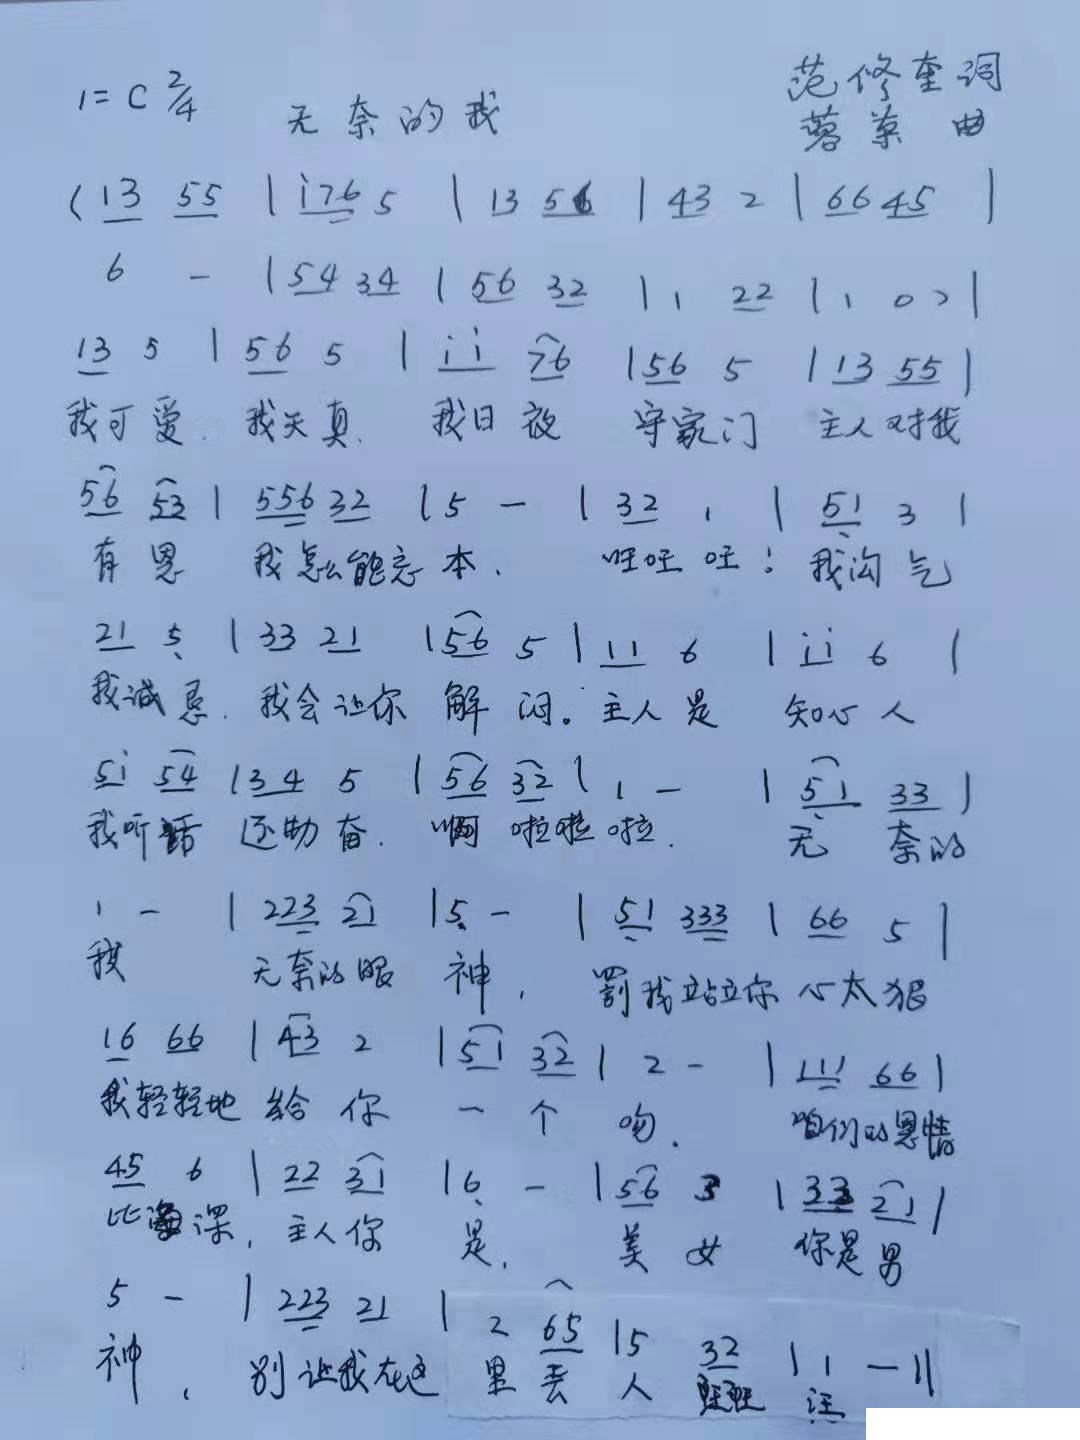 1=C 2/4
无奈的我
范修奎词
蓉菓 曲
( 13 55 | i76 5 | 13 56 | 43 2 | 66 45 |
6 - | 54 34 | 56 32 | 1 22 | 1 0 ) |
13 5 | 56 5 | i i 76 | 56 5 | 13 55 |
我可爱. 我天真. 我日夜 守家门 主人对我
56 53 | 556 32 | 5 - | 32 1 | 51 3 |
有恩 我怎么能忘本. 旺旺旺! 我淘气
21 5 | 33 21 | 56 5 | 11 6 | i i 6 |
我诚恳. 我会让你 解闷。主人是 知心人
5i 54 | 34 5 | 56 32 | 1 - | 51 33 |
我听话 还勤奋. 啊啦啦啦. 无 奈的
1 - | 223 21 | 5 - | 51 333 | 66 5 |
我 无奈的眼 神, 罚我站立你 心太狠
16 66 | 43 2 | 51 32 | 2 - | 111 66 |
我轻轻地 给你 一个吻. 咱们的恩情
45 6 | 22 31 | 6 - | 56 3 | 333 21 |
比海深, 主人你 是, 美女 你是男
5 - | 223 21 | 2 65 | 5 32 | 1 - ||
神, 别让我在这 里丢 人 旺旺 汪